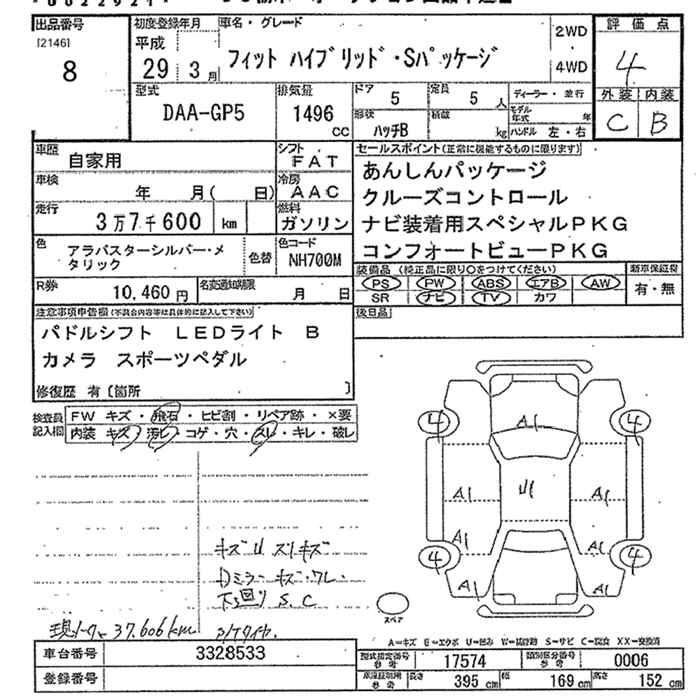 出品番号 初度登録年月 車名・グレード 2WD 評価点
[2146] 平成
8 29 3月 フィット ハイブリッド・Sパッケージ 4WD 4
型式 排気量 ドア 定員 ディーラー・並行 外装 内装
DAA-GP5 1496 CC 5 5人 モデル年式 年 C B
形状 積載
ハッチB kg ハンドル 左・右
車歴 自家用 シフト FAT セールスポイント(正常に機能するものに限ります)
車検 年 月( 日) 冷房 AAC あんしんパッケージ
走行 3万7千600 km 燃料 ガソリン クルーズコントロール
ナビ装着用スペシャルPKG
コンフォートビューPKG
色 アラバスターシルバー・メタリック 色替 色コード NH700M
装備品 (純正品に限り○をつけてください) 新車保証書
PS PW ABS エアB AW 有・無
SR ナビ TV カワ
R券 10,460円 名変通知期限 月 日
後日品
注意事項申告欄 (不具合内容等は具体的に記入して下さい)
パドルシフト LEDライト B
カメラ スポーツペダル
修復歴 有 [箇所 ]
検査員記入欄 FW キズ・飛石・ヒビ割・リペア跡・×要
内装 キズ・汚レ・コゲ・穴・スレ・キレ・破レ
4 A1 4
A1 U1 A1
A1 A1
4 4
A1 A1
キズ U スリキズ
ミラー キズ・ワレ
下回り S.C
37,606km
スペア
A=キズ E=エクボ U=凹み S=サビ C=腐食 XX=交換済
車台番号 3328533 型式指定番号 参考 17574 類別区分番号 参考 0006
登録番号 参考 長さ 395 cm 幅 169 cm 高さ 152 cm